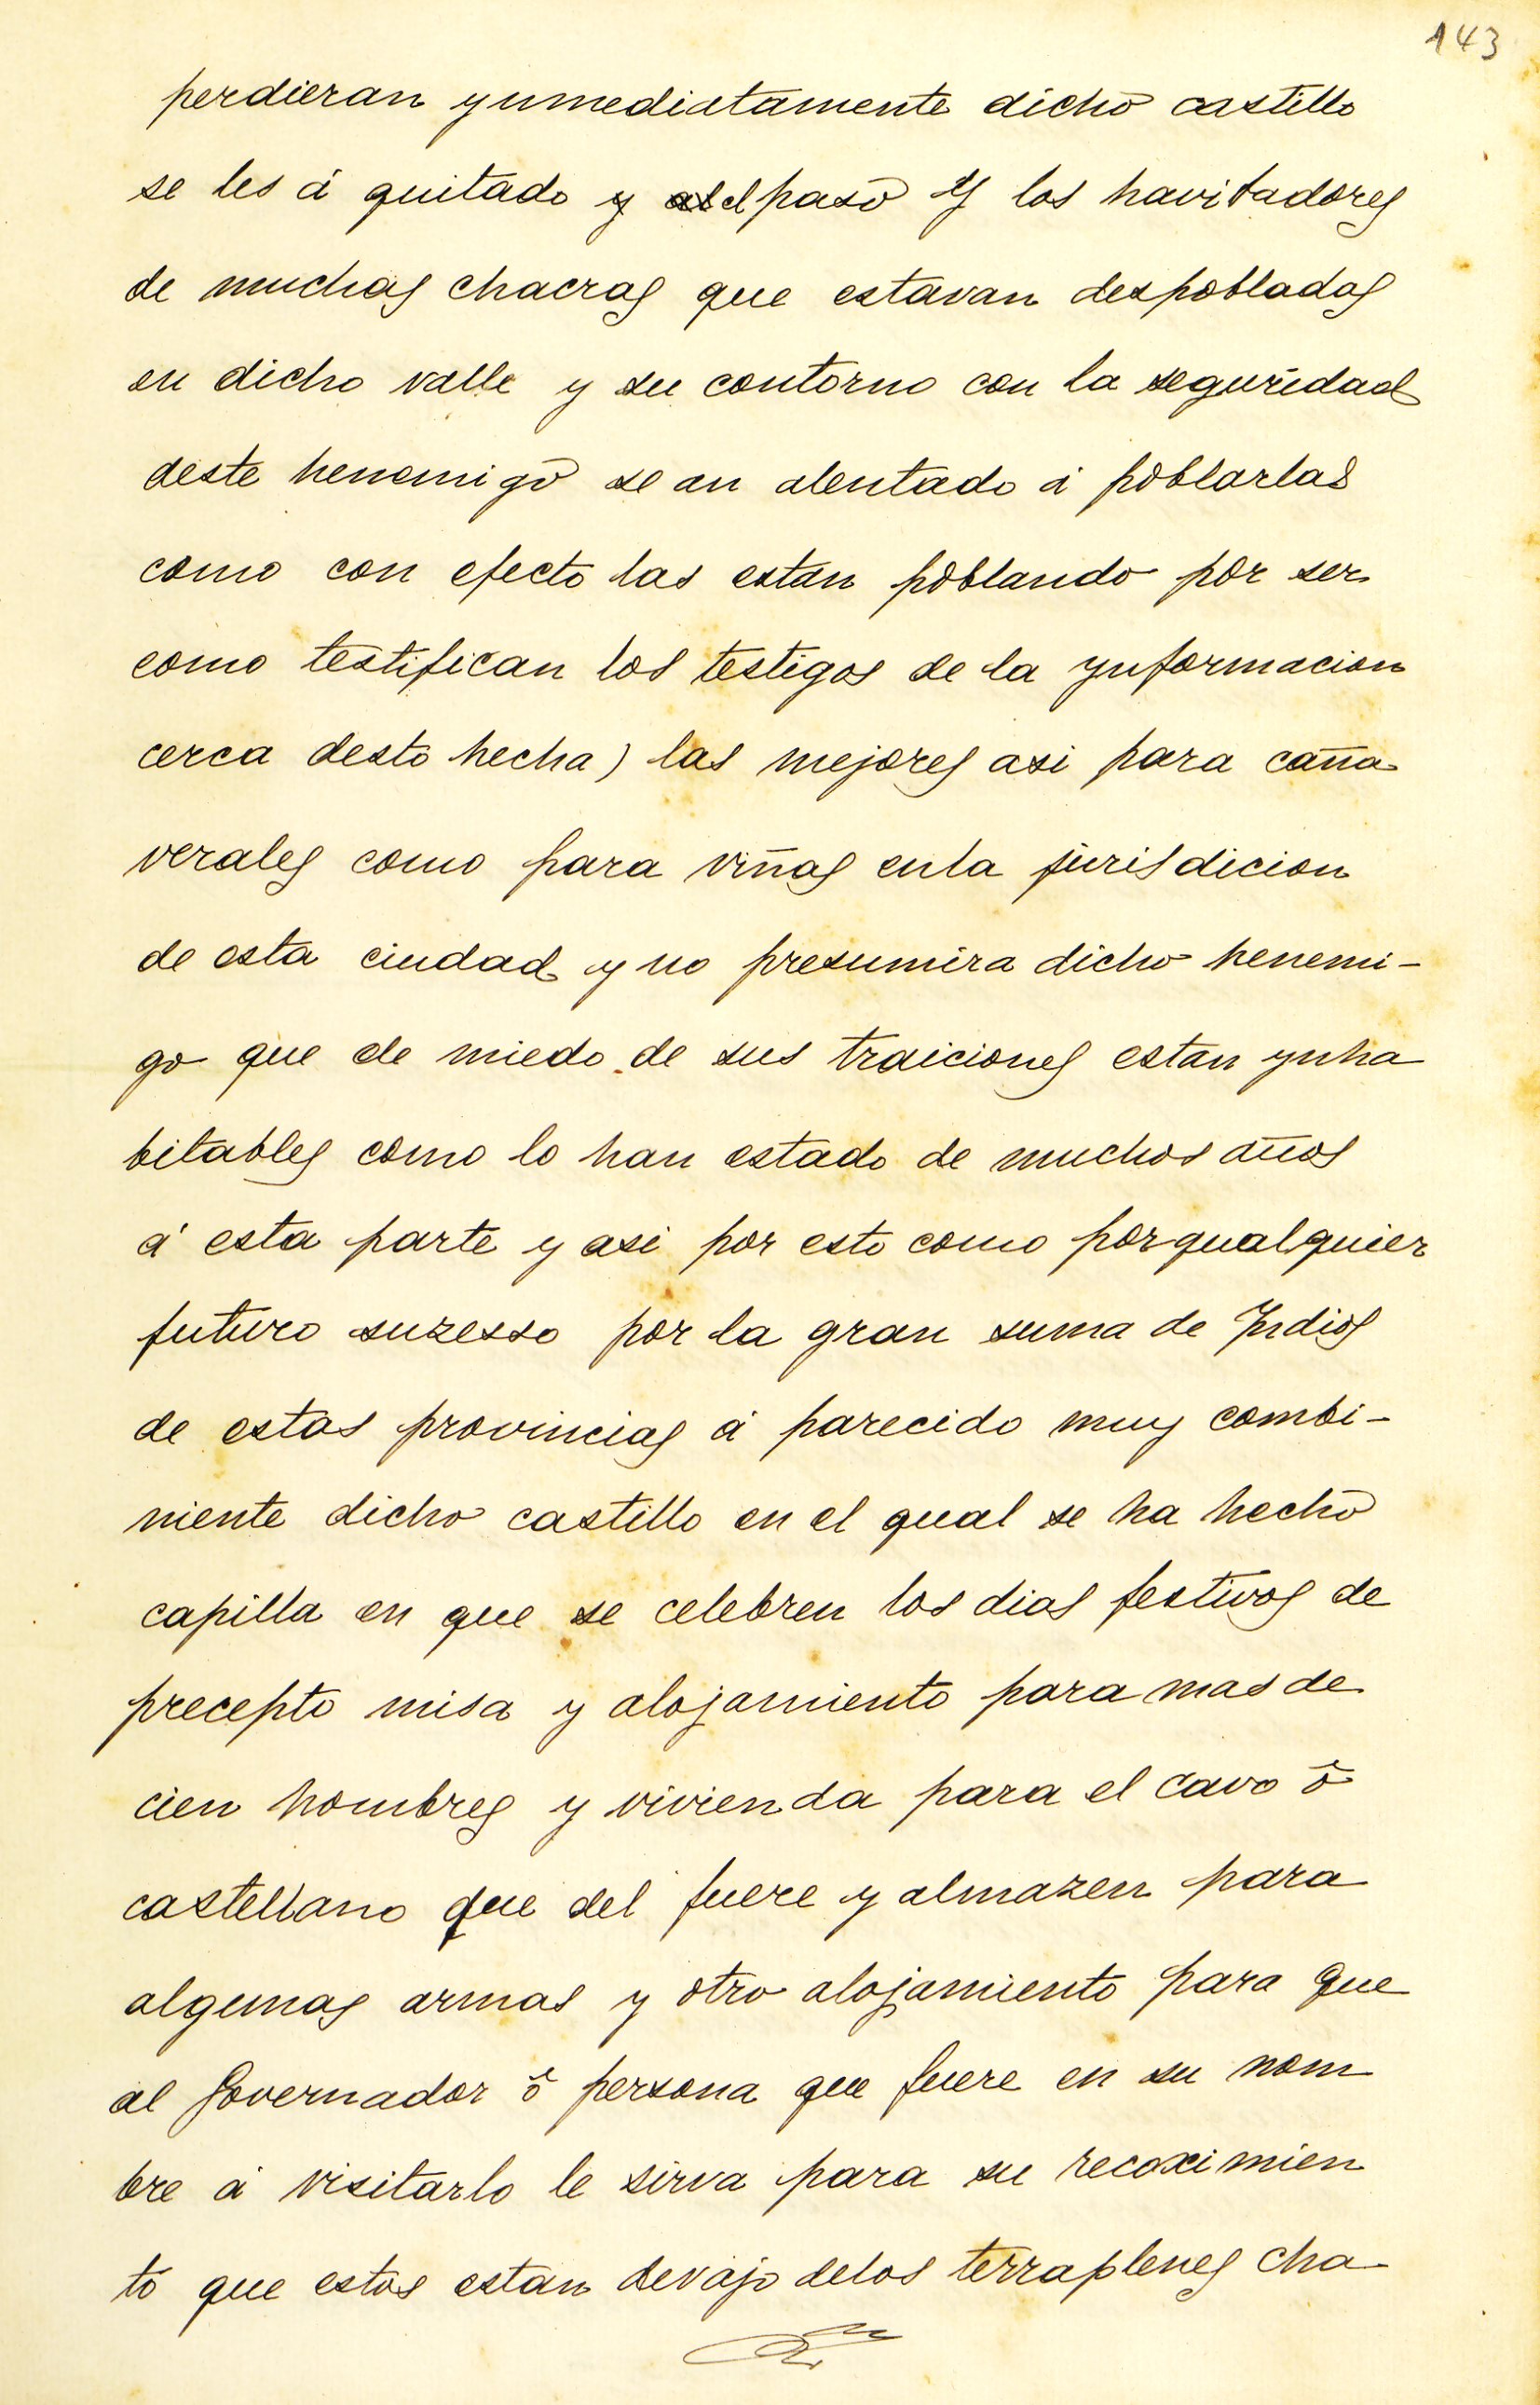 143
perdieran ynmediatamente dicho castillo
se les á quitado y el paso Y los havitadores
de muchas chacras que estavan despobladas
en dicho valle y su contorno con la seguridad
deste henemigo se an alentado á poblarlas
como con efecto las estan poblando por ser
como testifican los testigos de la ynformacion
cerca desto hecha) las mejores asi para caña
verales como para viñas enla jurisdicion
de esta ciudad y no presumira dicho henemi-
go que de miedo de sus traiciones estan ynha
bitables como lo han estado de muchos años
á esta parte y asi por esto como por qualquier
futuro suzesso por la gran suma de Indios
de estas provincias á parecido muy combi-
niente dicho castillo en el qual se ha hecho
capilla en que se celebren los dias festivos de
precepto misa y alojamiento para mas de
cien hombres y vivienda para el cavo ô
castellano que del fuere y almazen para
algunas armas y otro alojamiento para que
al Governador ô persona que fuere en su nom
bre á visitarlo le sirva para su recoximien
to que estos estan devajo delos terraplenes cha